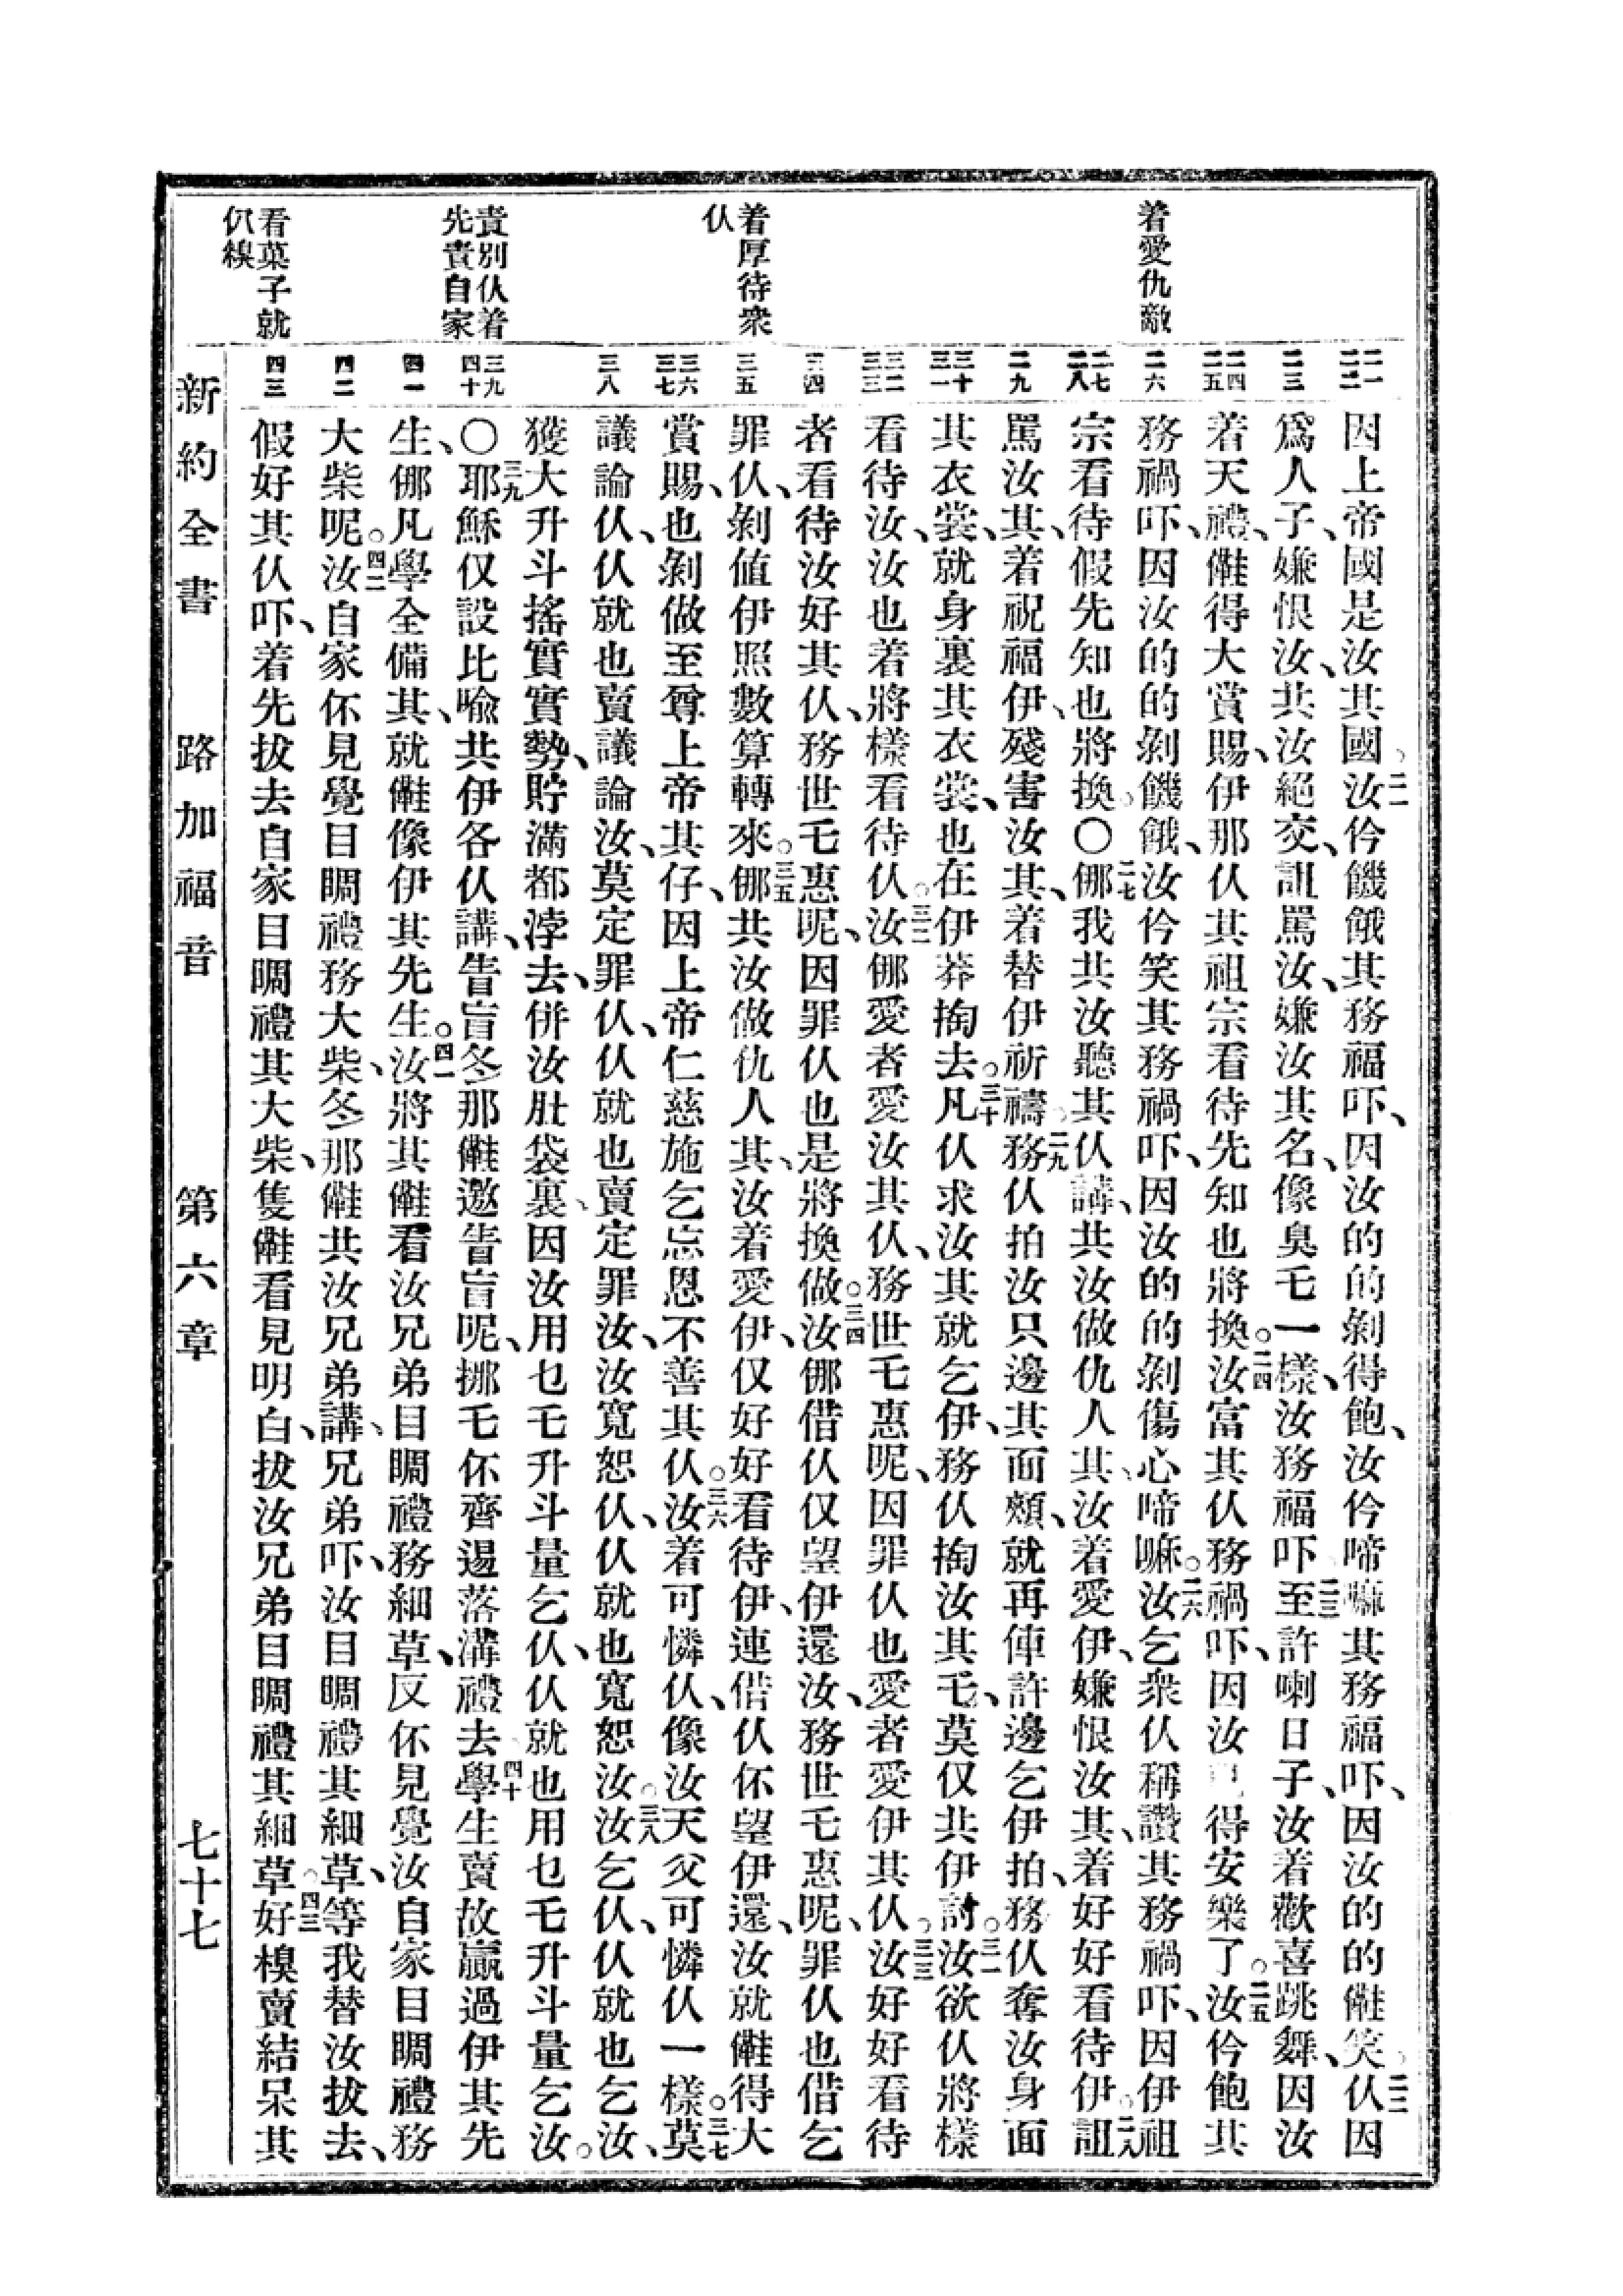 着愛仇敵
着厚待衆
仸
責別仸着
先責自家
看菓子就
仈䋦
二一 二二
二三
二四 二五
二六
二七 二八
二九
三十 三一
三二 三三
三四
三五
三六 三七
三八
三九 四十
四一
四二
四三
因上帝國是汝其國。二一汝仱饑餓其務福吓、因汝的的剝得飽、汝仱啼嘛其務福吓、因汝的的𠆧笑。二二仸因
爲人子、嫌恨汝、共汝絕交、詛罵汝、嫌汝其名、像臭乇一樣、汝務福吓。二三至許喇日子、汝着歡喜跳舞、因汝
着天禮、𠆧得大賞賜、伊那仸其祖宗看待先知也將換。二四汝富其仸務禍吓、因汝 得安樂了。二五汝仱飽其
務禍吓、因汝的的剝饑餓、汝仱笑其務禍吓、因汝的的剝傷心啼嘛。二六汝乞衆仸稱讚其務禍吓、因伊祖
宗看待假先知也將換。〇二七㑚我共汝聽其仸講、共汝做仇人其、汝着愛伊、嫌恨汝其、着好好看待伊。二八詛
罵汝其、着祝福伊、殘害汝其、着替伊祈禱。二九務仸拍汝只邊其面頰、就再俥許邊乞伊拍、務仸奪汝身面
其衣裳、就身裏其衣裳、也在伊莽掏去。三十凡仸求汝其就乞伊、務仸掏汝其乇、莫仅共伊討。三一汝欲仸將樣
看待汝、汝也着將樣看待仸。三二汝㑚愛者愛汝其仸、務世乇惠呢、因罪仸也愛者愛伊其仸。三三汝好好看待
者看待汝好其仸、務世乇惠呢、因罪仸也是將換做。三四汝㑚借仸仅望伊還汝、務世乇惠呢、罪仸也借乞
罪仸、剝值伊照數算轉來。三五㑚共汝做仇人其、汝着愛伊、仅好好看待伊、連借仸伓望伊還、汝就𠆧得大
賞賜、也剝做至尊上帝其仔、因上帝仁慈施乞忘恩不善其仸。三六汝着可憐仸、像汝天父可憐仸一樣。三七莫
議論仸、仸就也賣議論汝、莫定罪仸、仸就也賣定罪汝、汝寬恕仸、仸就也寬恕汝。三八汝乞仸、仸就也乞汝、
獲大升斗搖實實勢、貯滿都浡去、併汝肚袋裏、因汝用乜乇升斗量乞仸、仸就也用乜乇升斗量乞汝。
〇三九耶穌仅設比喻共伊各仸講、眚盲仒那𠆧邀眚盲呢、挪乇伓齊逿落溝禮去。四十學生賣故贏過伊其先
生、㑚凡學全備其、就𠆧像伊其先生。四一汝將其𠆧看汝兄弟目睭禮務細草、反伓見覺汝自家目睭禮務
大柴呢。四二汝自家伓見覺目睭禮務大柴、仒那𠆧共汝兄弟講、兄弟吓、汝目睭禮其細草、等我替汝拔去、
假好其仸吓、着先拔去自家目睭禮其大柴、隻𠆧看見明白、拔汝兄弟目睭禮其細草。四三好樣賣結呆其
新約全書 路加福音 第六章 七十七